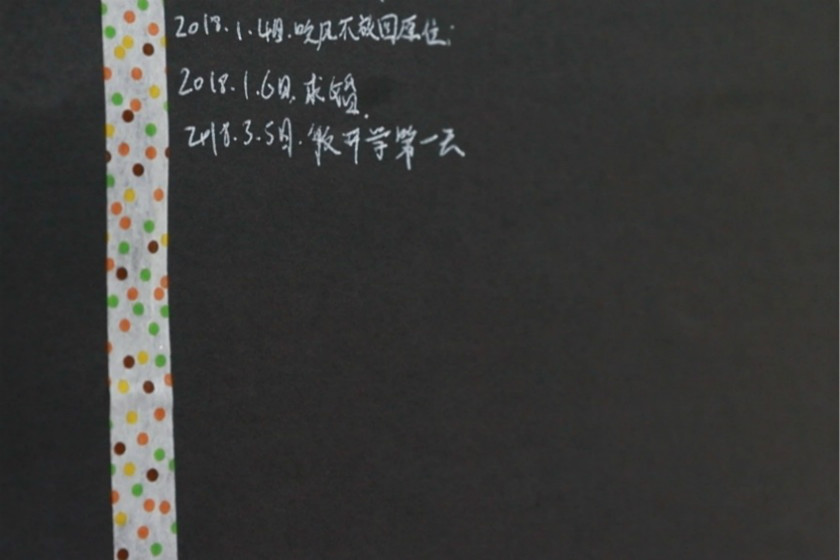 2018.1.4日.吹风不放回原位;
2018.1.6日.求婚.
2018.3.5日.假开学第一天